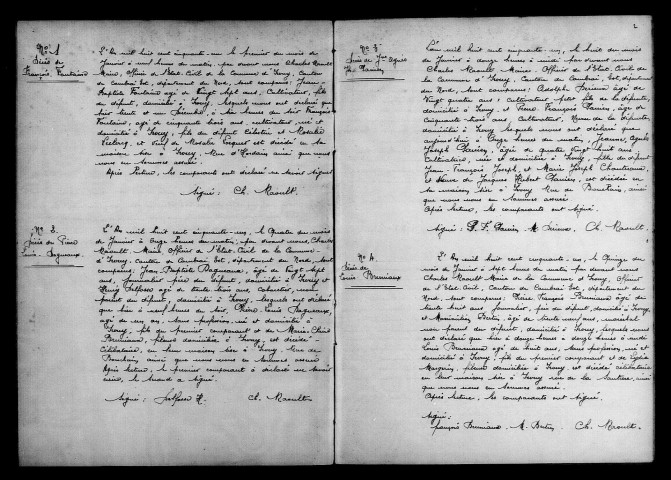 No 1
Décès de
François Fontaine
L'An mil huit cent cinquante-un le premier du mois de
Janvier à neuf heures du matin, par devant nous Charles Raoult
Maire, Officier de l'Etat Civil de la Commune d'Iwuy, Canton
de Cambrai Est, département du Nord, sont comparus: Jean
Baptiste Fontaine âgé de Vingt sept ans, Cultivateur, fils
du défunt, domicilié à Iwuy, lesquels nous ont déclaré que
hier trente et un Décembre, à six heures du soir François
Fontaine, âgé de cinquante trois ans, cultivateur, né et
domicilié à Iwuy, fils du défunt Célestin et Rosalie
Leclercq, et Veuf de Rosalie Pecquet est décédé en sa
maison sise à Iwuy, Rue d'Hordain ainsi que nous
nous en sommes assuré.
Après lecture, les comparants ont déclaré ne savoir signer
Signé: Ch. Raoult.
No 2
Décès de Pierre
Louis Dagneaux.
L'An mil huit cent cinquante-un, le Quatre du mois
de Janvier à Onze heures du matin, par devant nous, Charles
Raoult, Maire Officier de l'Etat-Civil de la Commune
d'Iwuy, canton de Cambrai Est, département du Nord, sont
comparus: Jean Baptiste Dagneaux, âgé de Vingt sept
ans, Journalier père du défunt, domicilié à Iwuy et
Henry âgé de trente huit ans,
parent du défunt, domicilié à Iwuy, lesquels ont déclaré
que hier à neuf heures du soir, Pierre Louis Dagneaux,
âgé de un an, sans profession, né et domicilié à
Iwuy, fils du premier comparant et de Marie
Bruniaux, domiciliés à Iwuy est décédé
Célibataire, en leur maison sise à Iwuy Rue du
ainsi que nous nous en sommes assuré
Après lecture, le premier comparant a déclaré ne savoir
écrire, le second a signé.
Signé: Ch. Raoult
2
No 3
Décès de Jne Agnès
Jh. Plaisiez
L'an mil huit cent cinquante-un, le huit du mois
de Janvier à douze heures à midi par devant nous
Charles Raoult Maire, Officier de l'Etat Civil de
la Commune d'Iwuy, Canton de Cambrai Est, département
du Nord, sont comparus: Adolphe âgé de
Vingt quatre ans, cultivateur, petit fils de la défunte,
domicilié à Iwuy et Pierre François Plaisiez, âgé de
Cinquante-trois ans, Cultivateur, Neveu de la défunte,
domicilié à Iwuy lesquels nous ont déclaré que
aujourd'hui à Onze heures du matin, Jeanne, Agnès
Joseph Plaisiez, âgée de quatre Vingt huit ans,
Cultivatrice, née et domiciliée à Iwuy, fille du défunt
Jean-François Joseph, et Marie Joseph
et Veuve de Jacques Hubert Plaisiez, est décédée en
sa maison sise à Iwuy Rue de ainsi
que nous nous en sommes assuré
Après lecture, les comparants ont signé.
Signé: P. F. Plaisiez Ch. Raoult.
No 4
Décès de
Louis Bruniaux
L'An mil huit cent cinquante-un, le Quinze du
mois de Janvier à sept heures du matin par devant nous
Charles Raoult Maire de la Commune d'Iwuy, Officier
de l'Etat Civil, Canton de Cambrai Est, département du
Nord, sont comparus: Pierre François Bruniaux âgé de
trente huit ans, Journalier, père du défunt, domicilié à Iwuy
et Bertin, âgé de trente neuf ans,
non parent du défunt, domicilié à Iwuy, lesquels nous
ont déclaré que hier à douze heures à midi
Louis Bruniaux âgé de huit ans, sans profession, né et
domicilié à Iwuy, fils du premier comparant et de
domiciliée à Iwuy, est décédé célibataire
en leur maison sise à Iwuy rue de la ainsi
que nous nous en sommes assuré
Après lecture, les comparants ont signé.
Signé:
françois Bruniaux. M. Bertin Ch. Raoult.